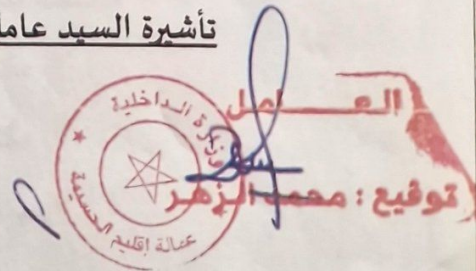 تأشيرة السيد عامل
العـــــامل
توقيع : محمد الزهر
وزارة الداخلية
عمالة إقليم الحسيمة